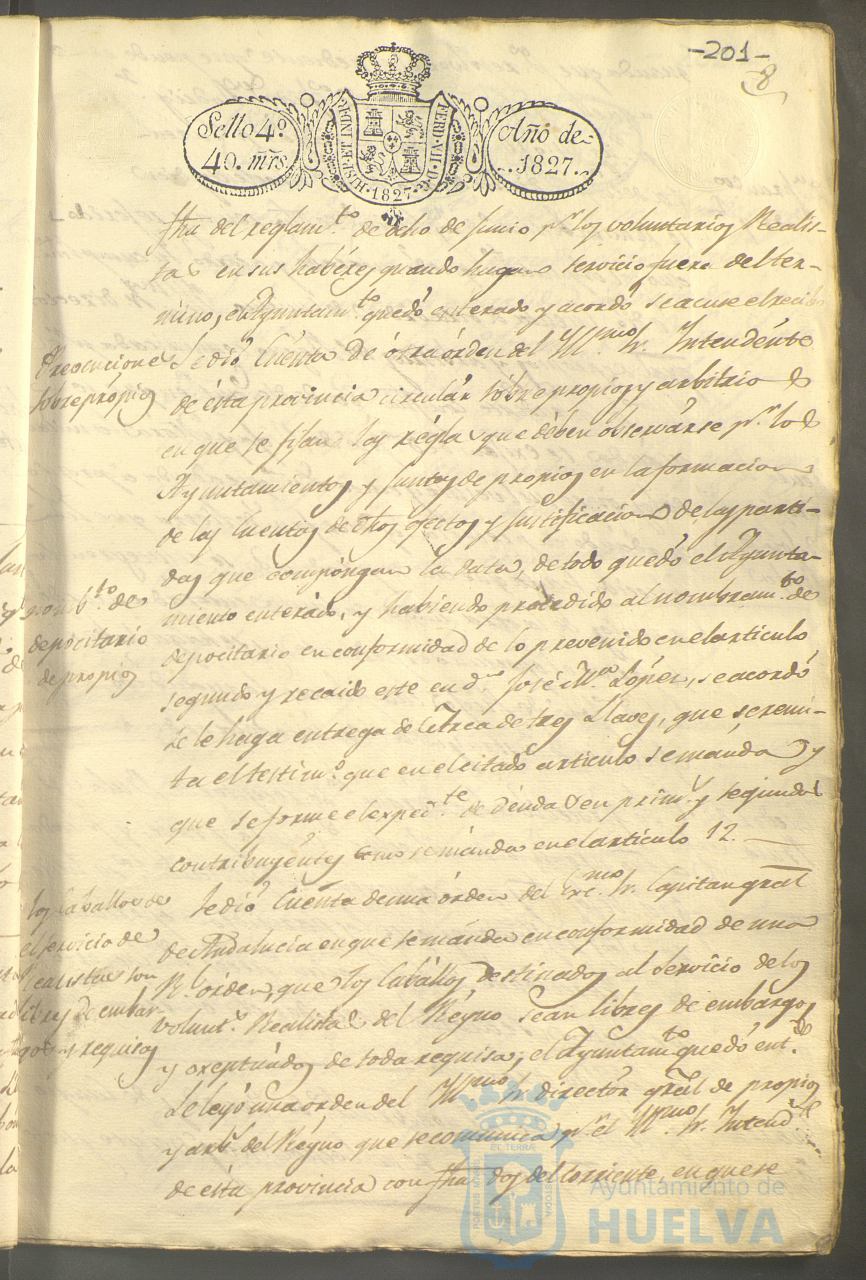 -201-
8
Sello 4º
40. mrs
HISP. ET IND. R.
FERD. VII. D. G.
1827
Año de
1827.
fha del reglam.to de ocho de Junio p.a los voluntarios Realis-
tas en sus habéres quando hagan servicio fuera del ter-
mino, el Ayuntam.to quedó enterado y acordó se acuse el recibo
Prevenciones
sobre própios
Se dió Cuenta de ótra órden del Yll.mo Sr. Intendénte
de ésta provincia circulár sóbre propios y arbitrios
en que se fijan las réglas que deben observárse p.r los
Ayuntamientos y Juntas de propios en la formacion
de las Cuentas de dhos efectos y Justificacion de las parti-
das que compóngan la data, de todo quedó el Ayunta-
miento enterádo, y habiendo procedido al nombram.to de
nomb.to de
depocitario
de propios
depocitario en conformidad de lo prevenido en el articulo
segundo y recaido este en d.n José M.a López, se acordó
se le haga entrega de el Arca de tres Llaves, que se remi-
ta el testim.o que en el citado articulo se mánda y
que se forme el exped.te de déudas en prim.s y segundos
contribuyéntes como se mánda en el articulo 12.
los Caballos de
el servicio de
realistas son
libres de embar-
gos y requisas
Se dió Cuenta de una órden del Exc.mo Sr. Capitan gral
de Andalucia en que se mánda en conformidad de una
R.l órden, que los Cabállos destinados al servicio de los
volunt.s Realistas del Réyno sean libres de embárgos
y exeptuádos de toda requisa, el Ayuntam.to quedó ent.do
Se leyó una órden del Yll.mo Sr. diréctor gral de propios
y arb.s del Réyno que se comunica p.r el Yll.mo Sr. Intend.te
de ésta provincia con fha dos del Corriente, en que se
Ayuntamiento de
HUELVA